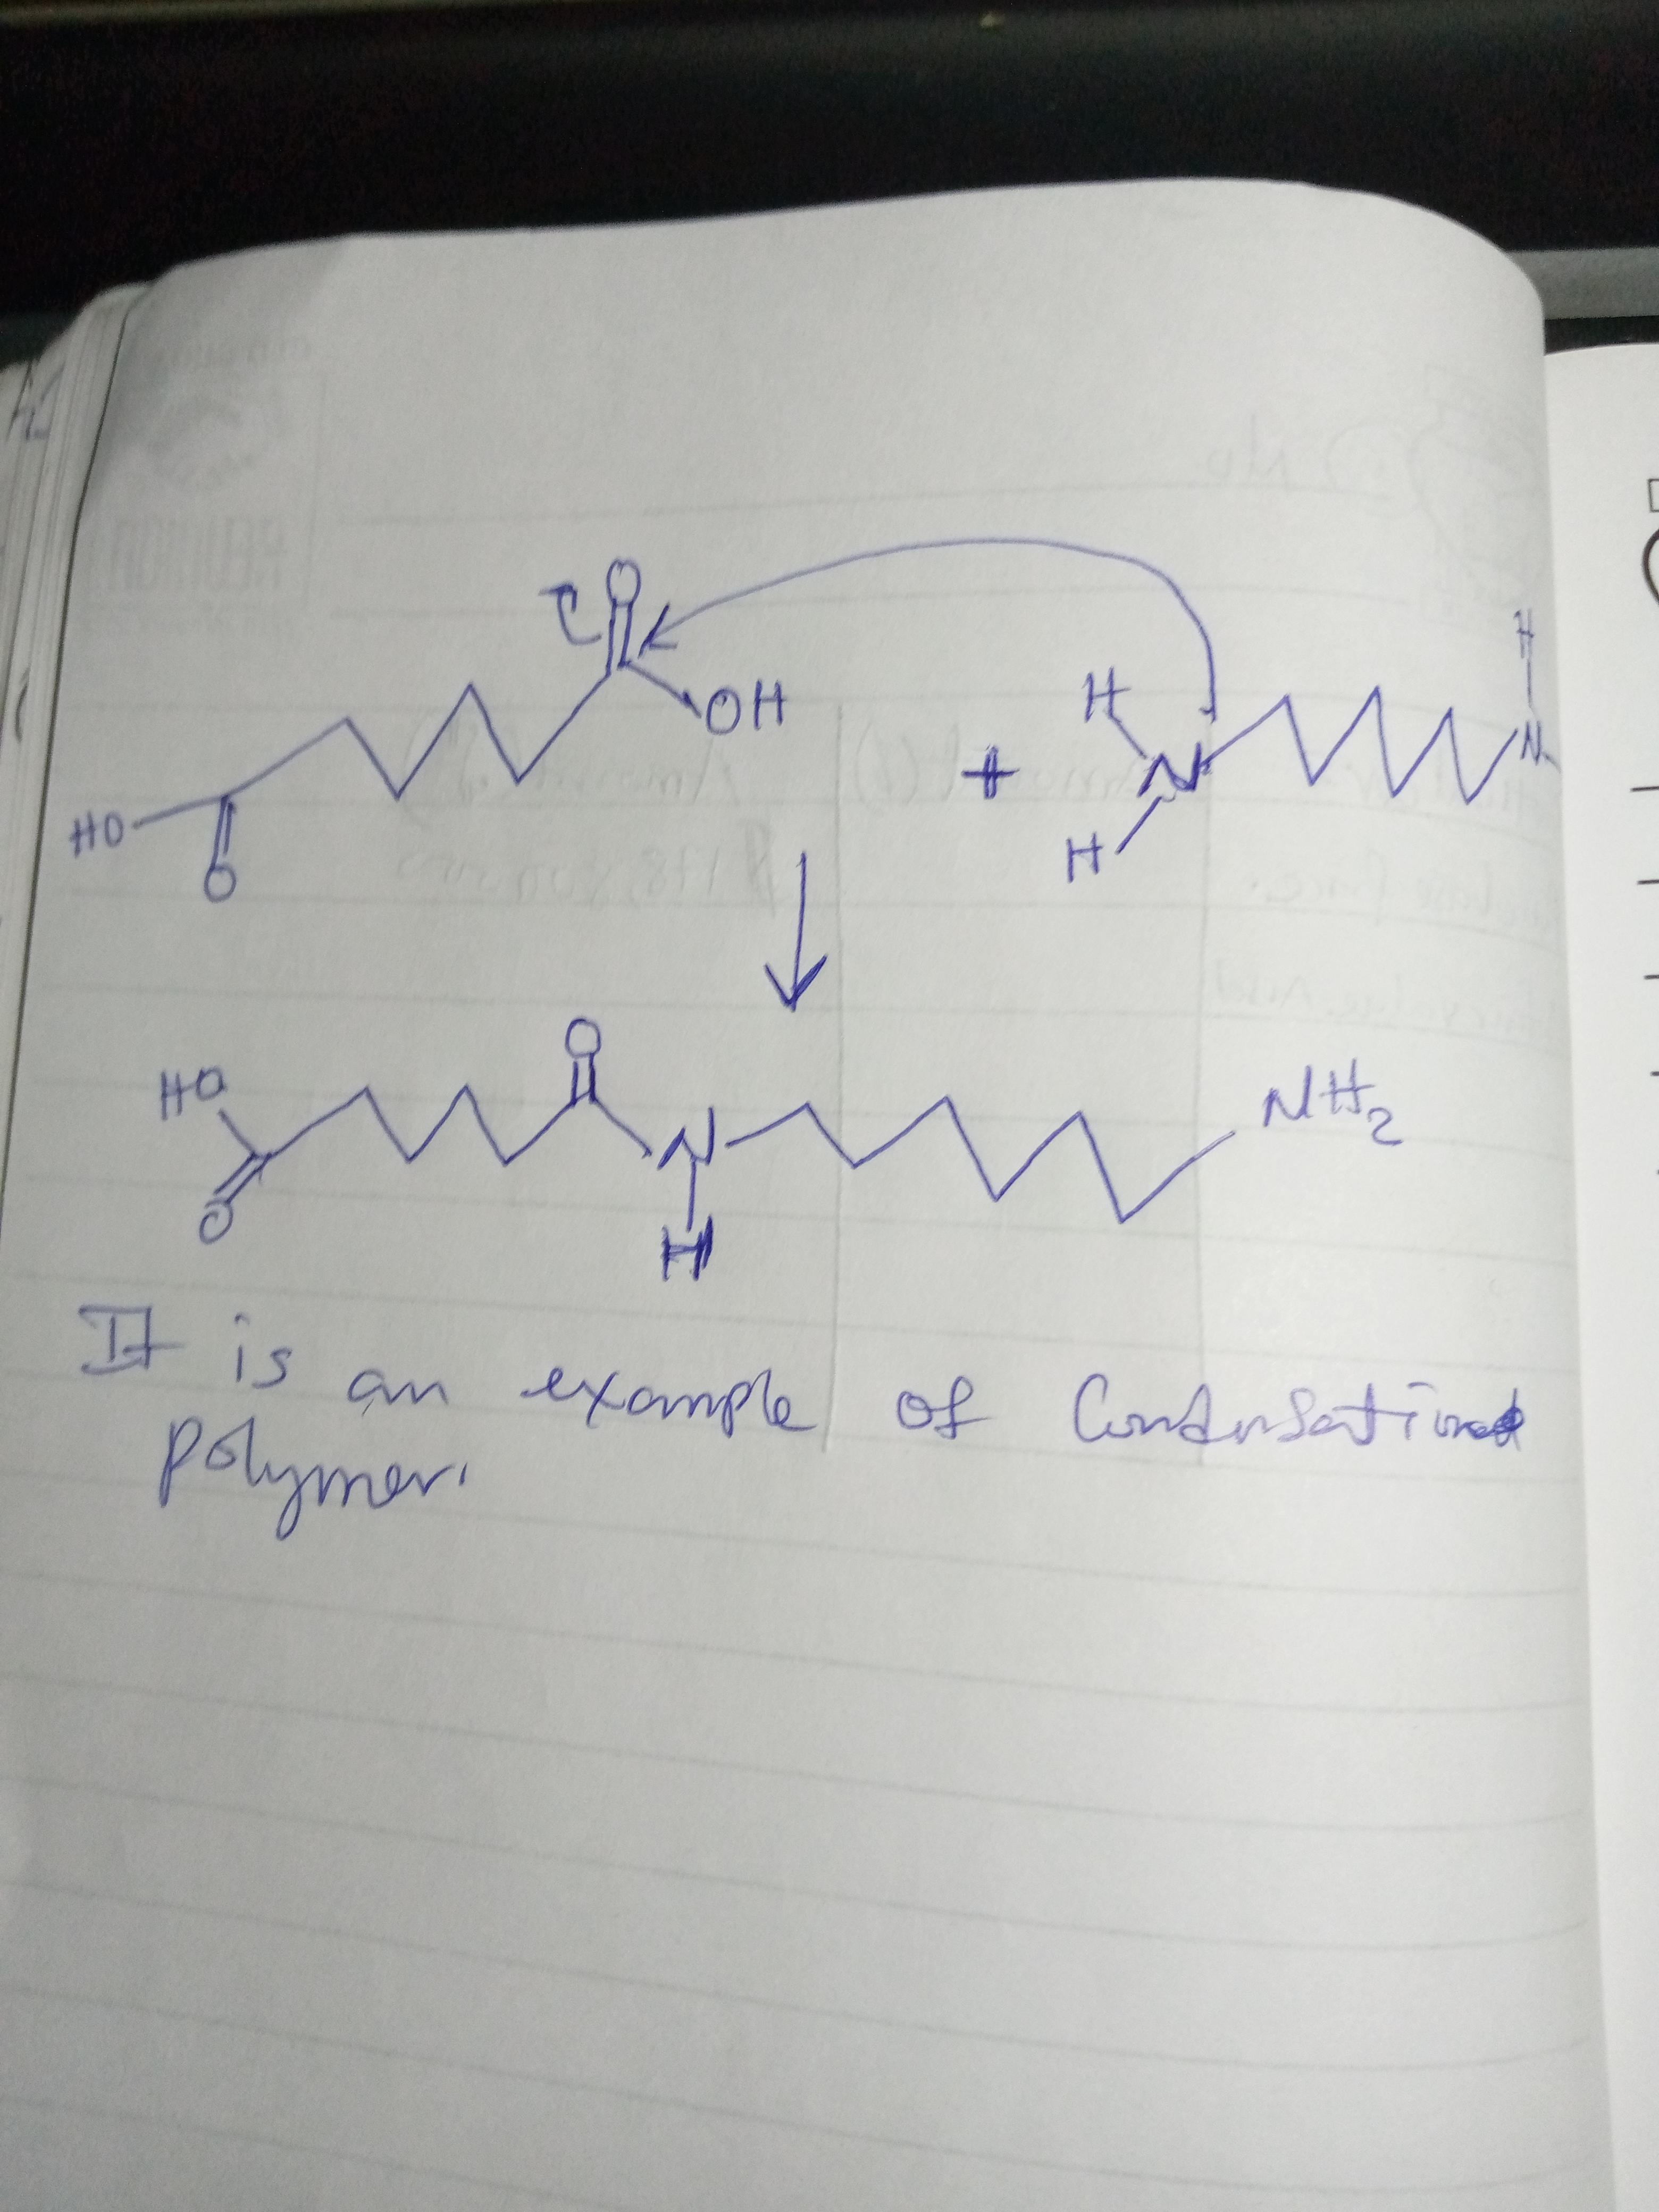 O
OH
H
H
N
+
N
H
HO
O
O
HO
NH2
N
O
H
It is an example of Condensation
polymer.